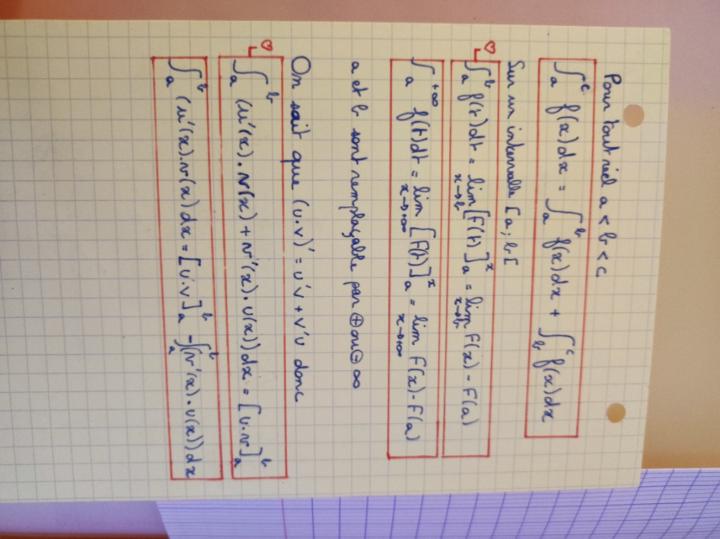 Pour tout réel a < b < c
∫_a^c f(x)dx = ∫_a^b f(x)dx + ∫_b^c f(x)dx
Sur un intervalle [a ; b[
♡ ∫_a^b f(t)dt = lim_{x→b} [F(t)]_a^x = lim_{x→b} F(x) - F(a)
∫_a^{+∞} f(t)dt = lim_{x→+∞} [F(t)]_a^x = lim_{x→+∞} F(x) - F(a)
a et b sont remplaçable par ⊕ ou ⊖ ∞
On sait que (u.v)' = u'v + v'u donc
♡ ∫_a^b (u'(x).v(x) + v'(x).u(x))dx = [u.v]_a^b
∫_a^b (u'(x).v(x)dx = [u.v]_a^b - ∫_a^b (v'(x).u(x))dx